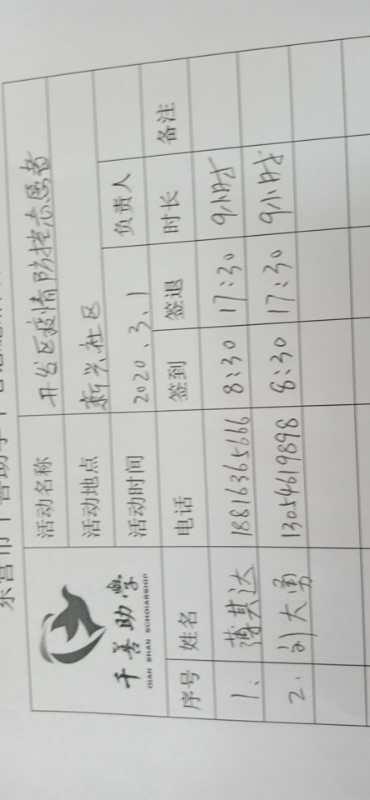 千善助学
QIAN SHAN SCHOLARSHIP
活动名称 开发区疫情防控志愿者
活动地点 新兴社区
活动时间 2020.3.1 负责人
序号 姓名 电话 签到 签退 时长 备注
1、 薄其达 18816365666 8:30 17:30 9小时
2. 刘大勇 13054619898 8:30 17:30 9小时